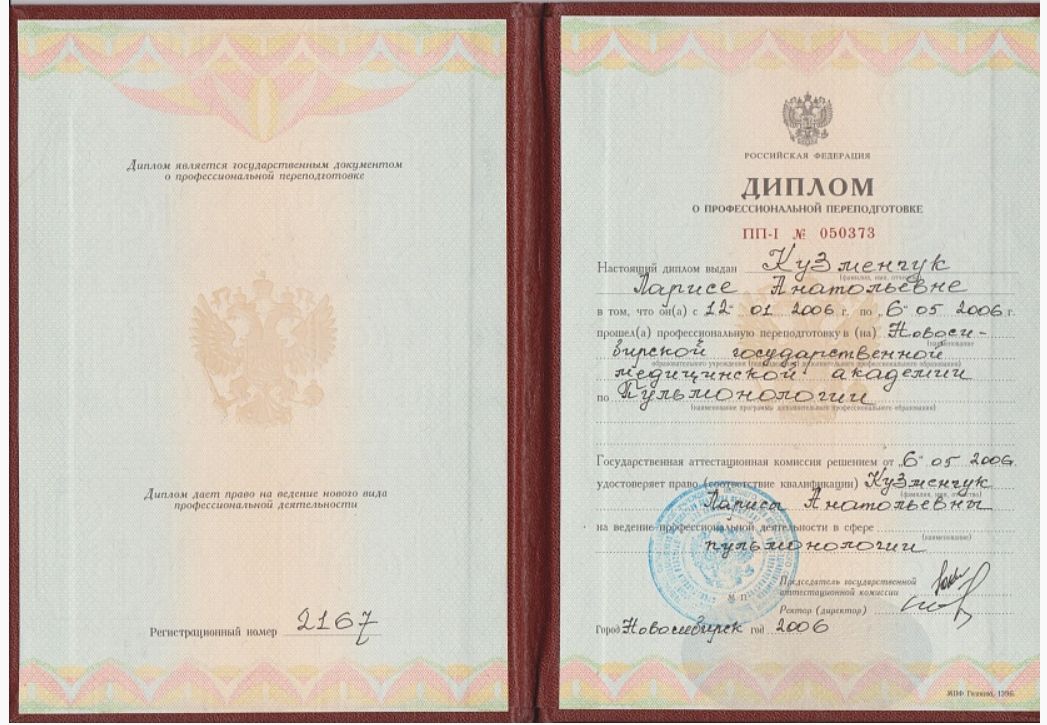 Диплом является государственным документом
о профессиональной переподготовке
Диплом дает право на ведение нового вида
профессиональной деятельности
Регистрационный номер 2167
РОССИЙСКАЯ ФЕДЕРАЦИЯ
ДИПЛОМ
О ПРОФЕССИОНАЛЬНОЙ ПЕРЕПОДГОТОВКЕ
ПП-I № 050373
Настоящий диплом выдан Кузменчук
(фамилия, имя, отчество)
Ларисе Анатольевне
в том, что он(а) с „12“ 01 2006 г. по „6“ 05 2006 г.
прошел(а) профессиональную переподготовку в (на) Новоси-
(наименование
бирской государственной
образовательного учреждения (подразделения) дополнительного профессионального образования)
медицинской академии
по Пульмонологии
(наименование программы дополнительного профессионального образования)
Государственная аттестационная комиссия решением от „6“ 05 2006
удостоверяет право (соответствие квалификации) Кузменчук
(фамилия, имя, отчество)
Ларисы Анатольевны
на ведение профессиональной деятельности в сфере
(наименование)
пульмонологии
Председатель государственной
аттестационной комиссии
М П
Ректор (директор)
Город Новосибирск год 2006
МПФ Гознака, 1996.